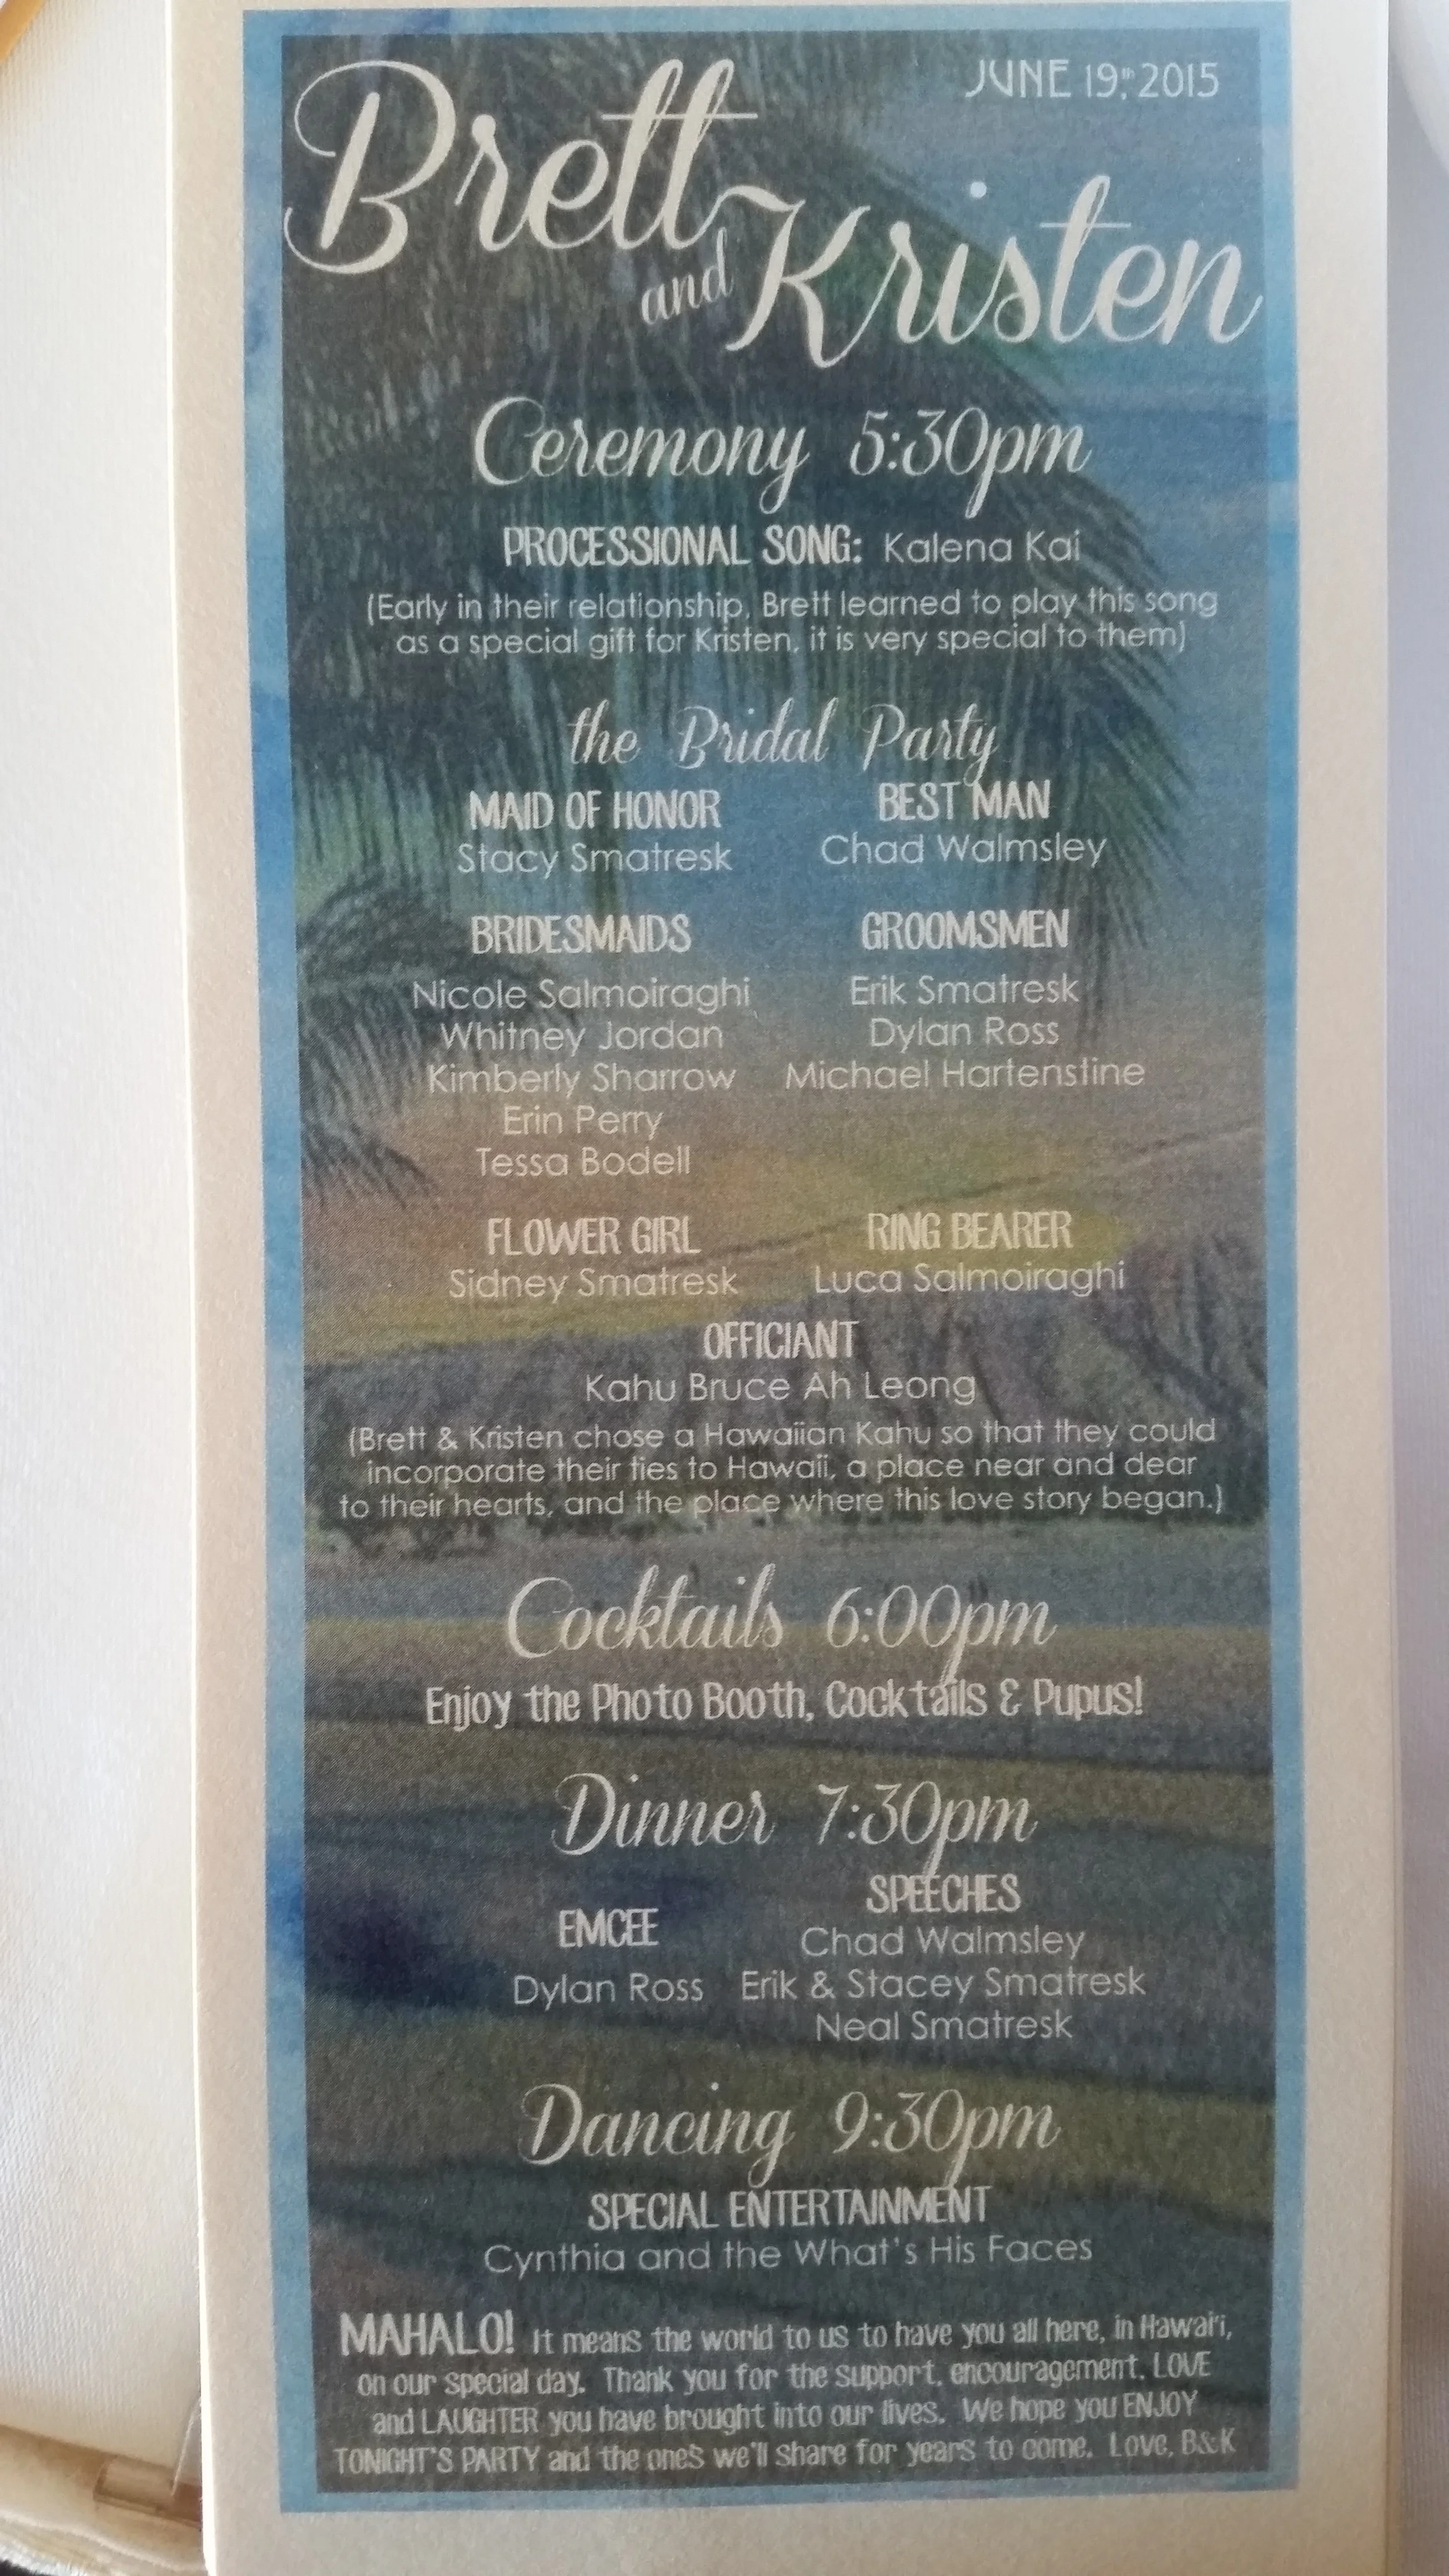 JUNE 19th, 2015
Brett
and Kristen
Ceremony 5:30pm
PROCESSIONAL SONG: Kalena Kai
(Early in their relationship, Brett learned to play this song
as a special gift for Kristen, it is very special to them)
the Bridal Party
MAID OF HONOR
Stacy Smatresk
BEST MAN
Chad Walmsley
BRIDESMAIDS
Nicole Salmoiraghi
Whitney Jordan
Kimberly Sharrow
Erin Perry
Tessa Bodell
GROOMSMEN
Erik Smatresk
Dylan Ross
Michael Hartenstine
FLOWER GIRL
Sidney Smatresk
RING BEARER
Luca Salmoiraghi
OFFICIANT
Kahu Bruce Ah Leong
(Brett & Kristen chose a Hawaiian Kahu so that they could
incorporate their ties to Hawaii, a place near and dear
to their hearts, and the place where this love story began.)
Cocktails 6:00pm
Enjoy the Photo Booth, Cocktails & Pupus!
Dinner 7:30pm
EMCEE
Dylan Ross
SPEECHES
Chad Walmsley
Erik & Stacey Smatresk
Neal Smatresk
Dancing 9:30pm
SPECIAL ENTERTAINMENT
Cynthia and the What's His Faces
MAHALO! It means the world to us to have you all here, in Hawai'i,
on our special day. Thank you for the support, encouragement, LOVE
and LAUGHTER you have brought into our lives. We hope you ENJOY
TONIGHT'S PARTY and the one's we'll share for years to come. Love, B&K